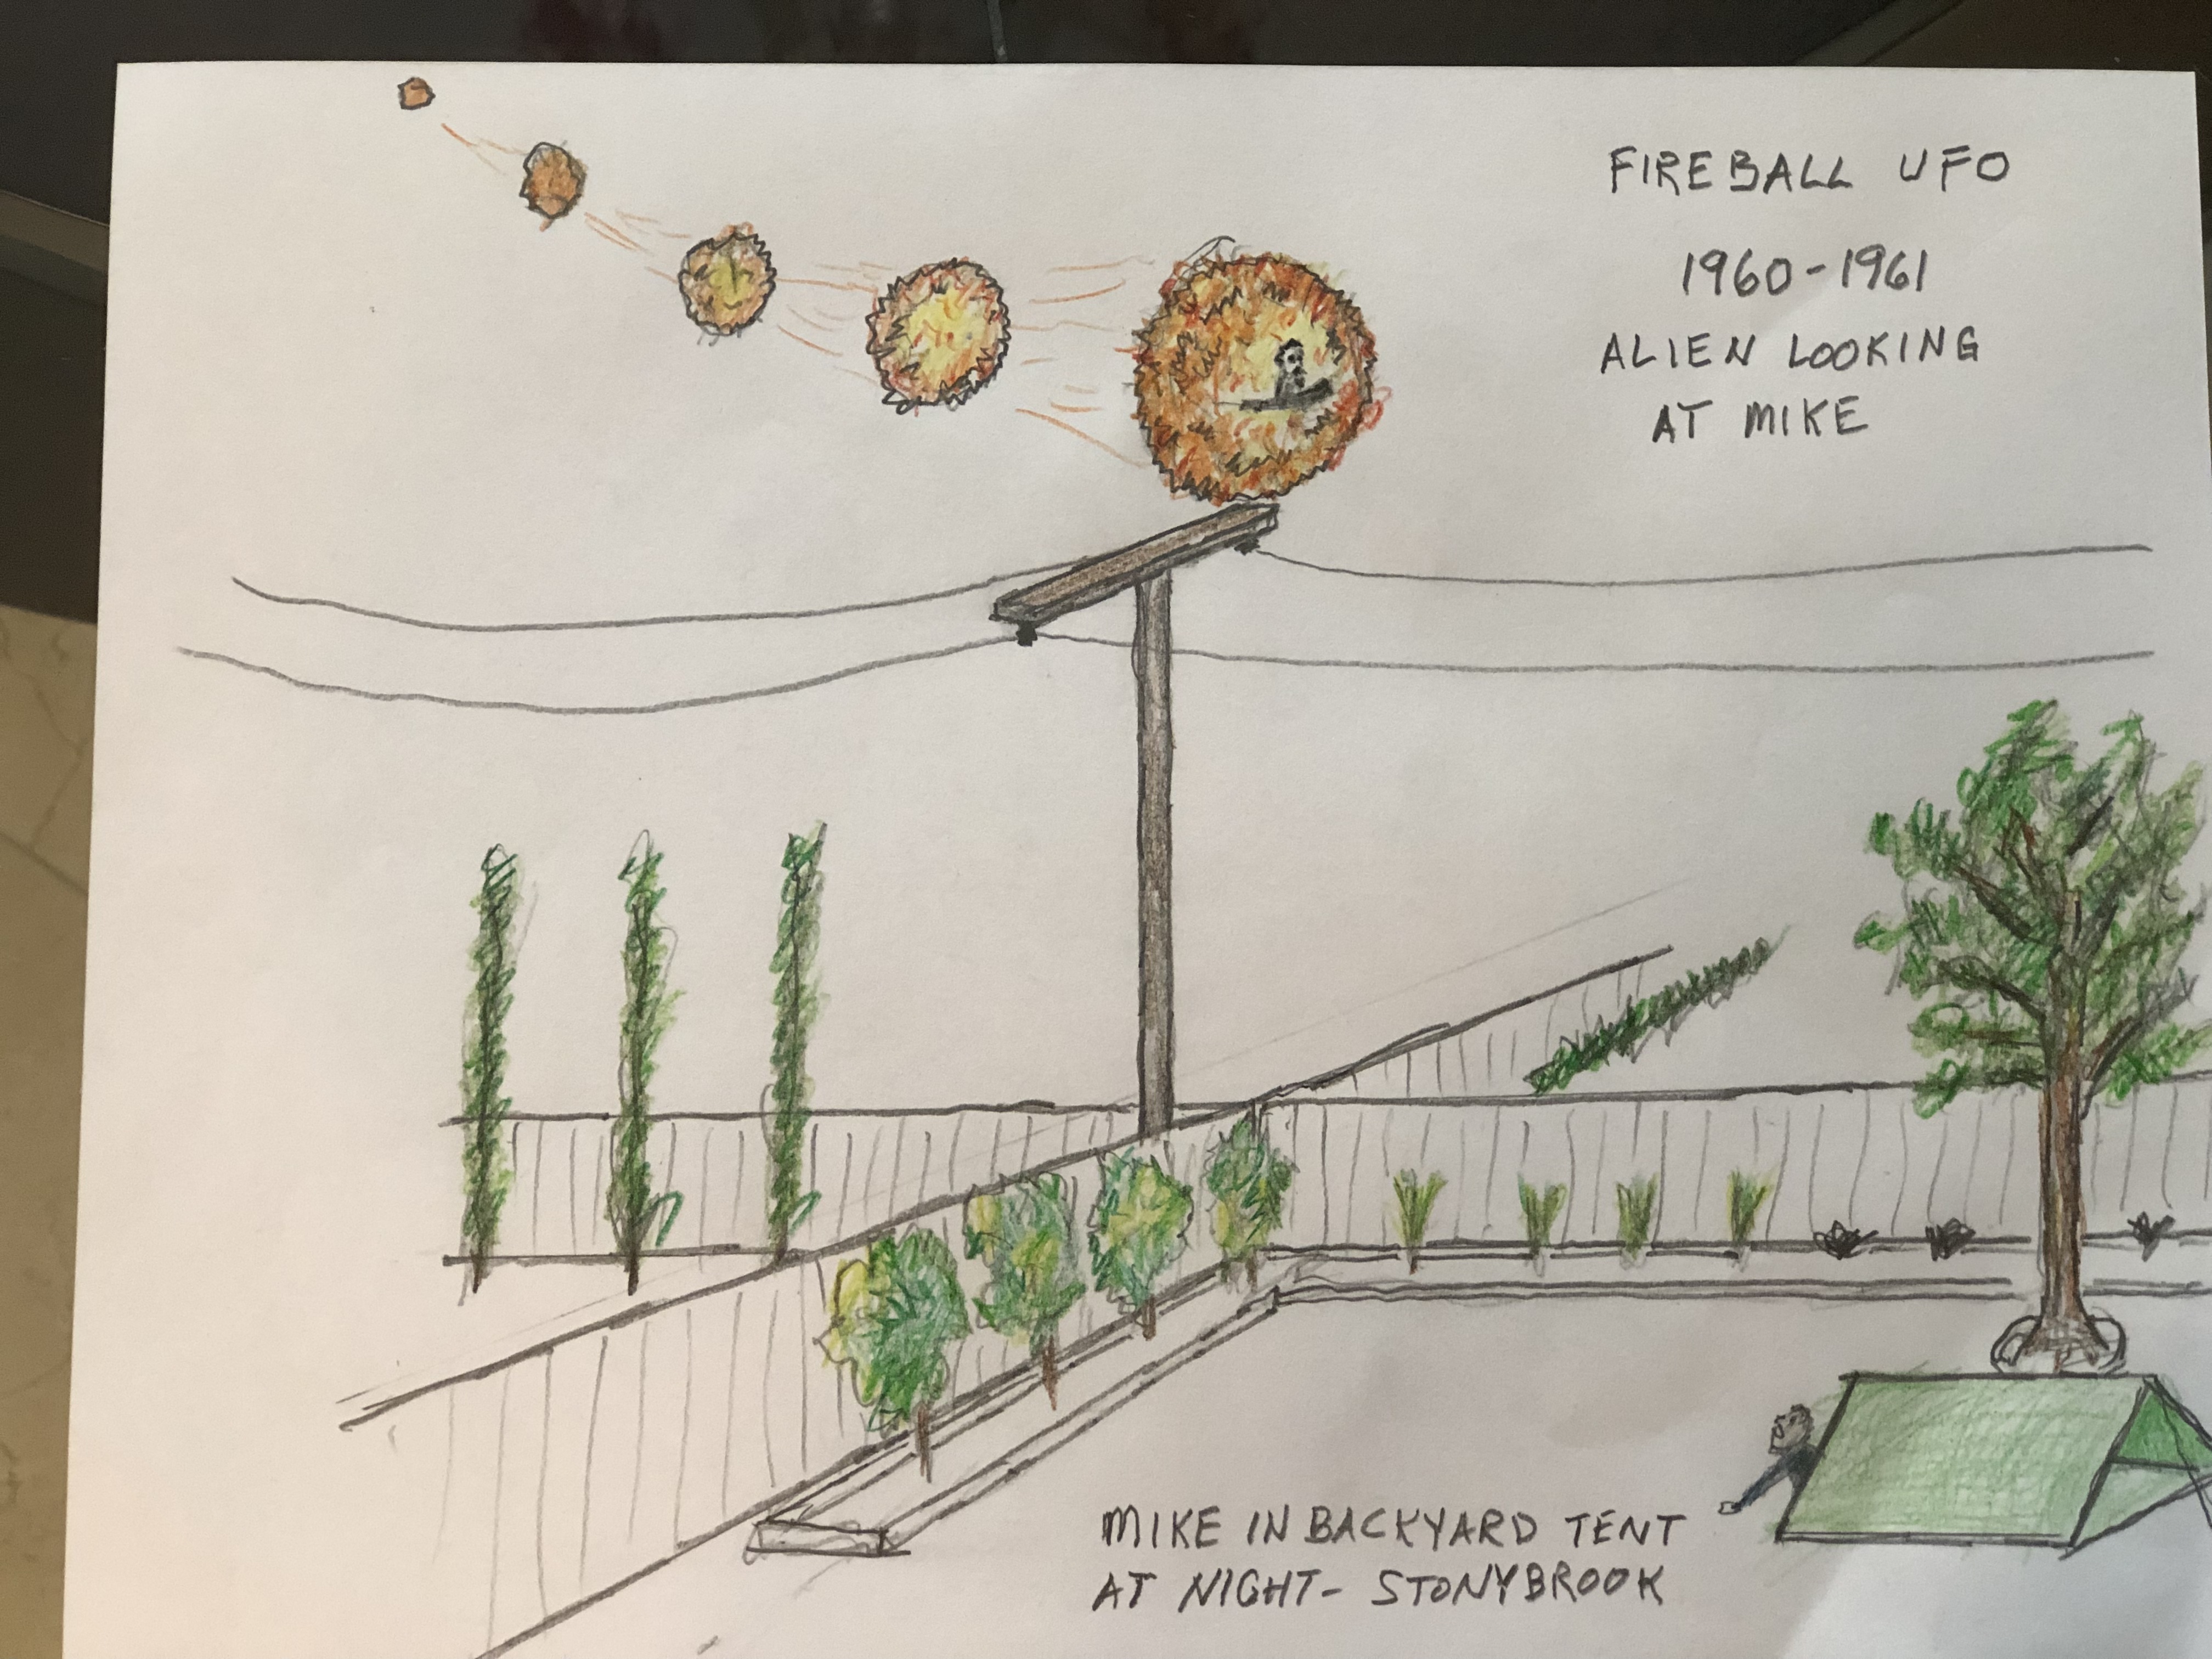 FIREBALL UFO
1960-1961
ALIEN LOOKING
AT MIKE
MIKE IN BACKYARD TENT
AT NIGHT- STONYBROOK